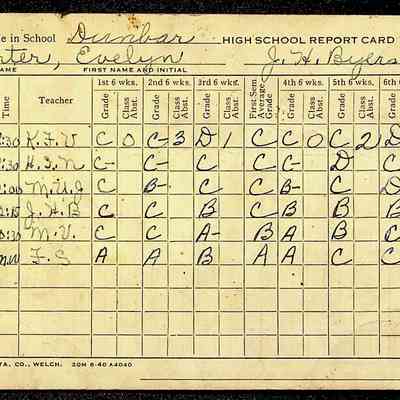 e in School Dunbar HIGH SCHOOL REPORT CARD
rter, Evelyn J. H. Byers
NAME FIRST NAME AND INITIAL
Time Teacher 1st 6 wks. 2nd 6 wks. 3rd 6 wks. First Sem. Average Grade 4th 6 wks. 5th 6 wks. 6th
Grade Class Abst. Grade Class Abst. Grade Class Abst. Grade Class Abst. Grade Class Abst. Grade
:30 K.F.V C 0 C- 3 D 1 C C 0 C 2 D
:30 H.S.N C- C- C C C- D C
:00 M.U.J C B- C C B- C D
:15 J.H.B C C B C B B B
:30 M.V. C C A- B A B C
F.S A A B A A C C
TA, CO., WELCH. 20M 6-40 A4040